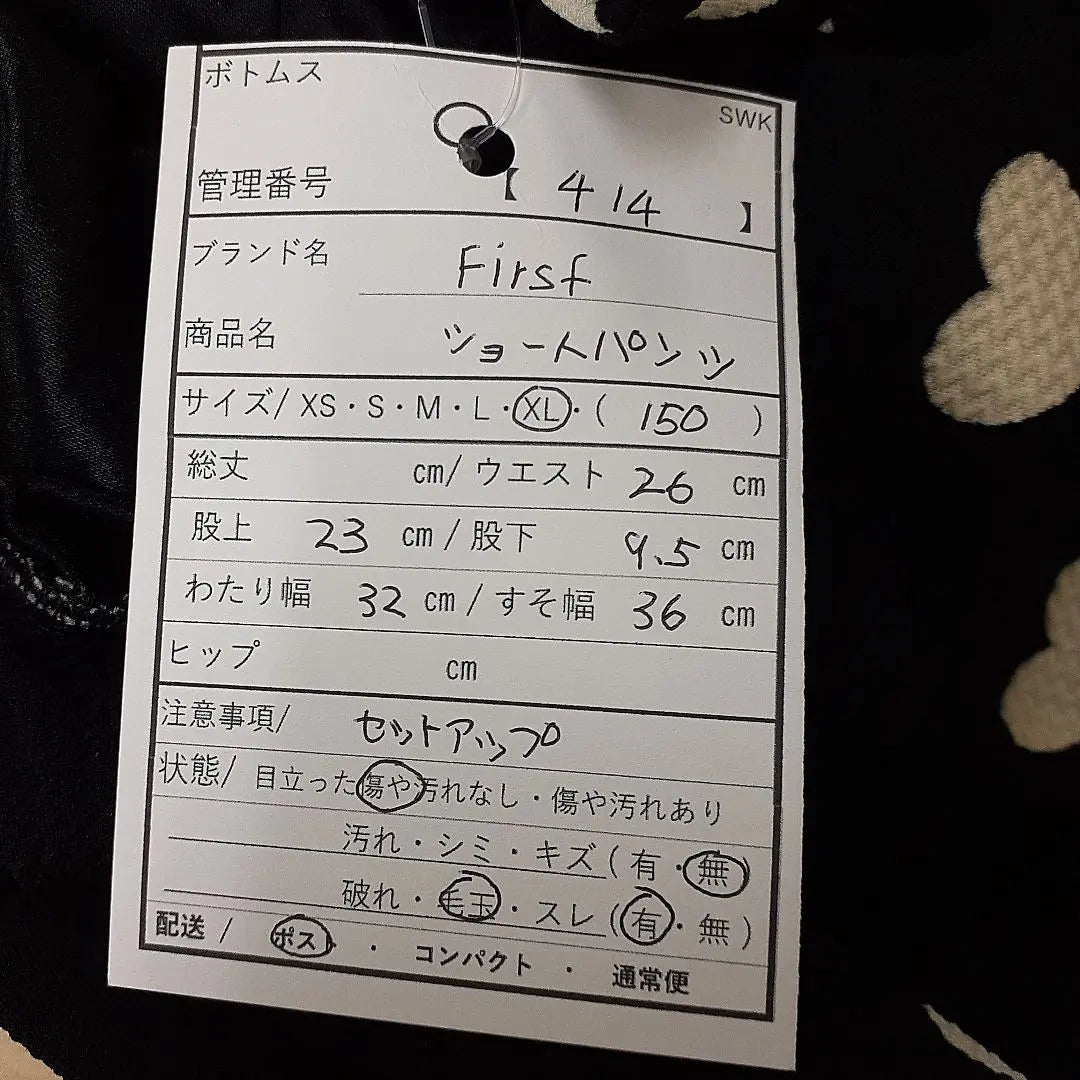 ボトムス
SWK
管理番号 【 414 】
ブランド名 First
商品名 ショートパンツ
サイズ/ XS・S・M・L・XL・( 150 )
総丈 cm/ ウエスト 26 cm
股上 23 cm / 股下 9.5 cm
わたり幅 32 cm / すそ幅 36 cm
ヒップ cm
注意事項/ セットアップ
状態/ 目立った傷や汚れなし・傷や汚れあり
汚れ・シミ・キズ ( 有・無 )
破れ・毛玉・スレ ( 有・無 )
配送 / ポスト ・ コンパクト ・ 通常便